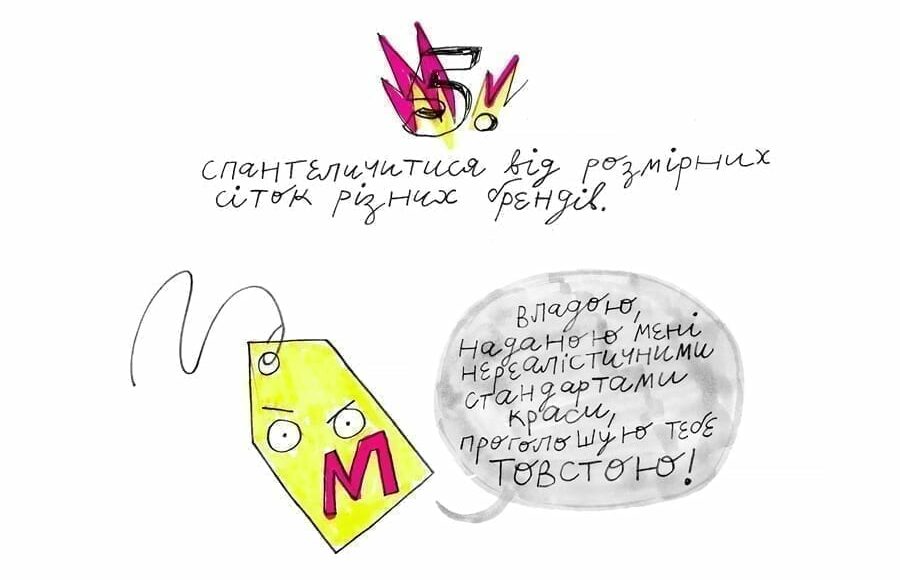 5.
спантеличитися від розмірних
сіток різних брендів.
Владою,
наданою мені
нереалістичними
стандартами
краси,
проголошую тебе
ТОВСТОЮ!
M